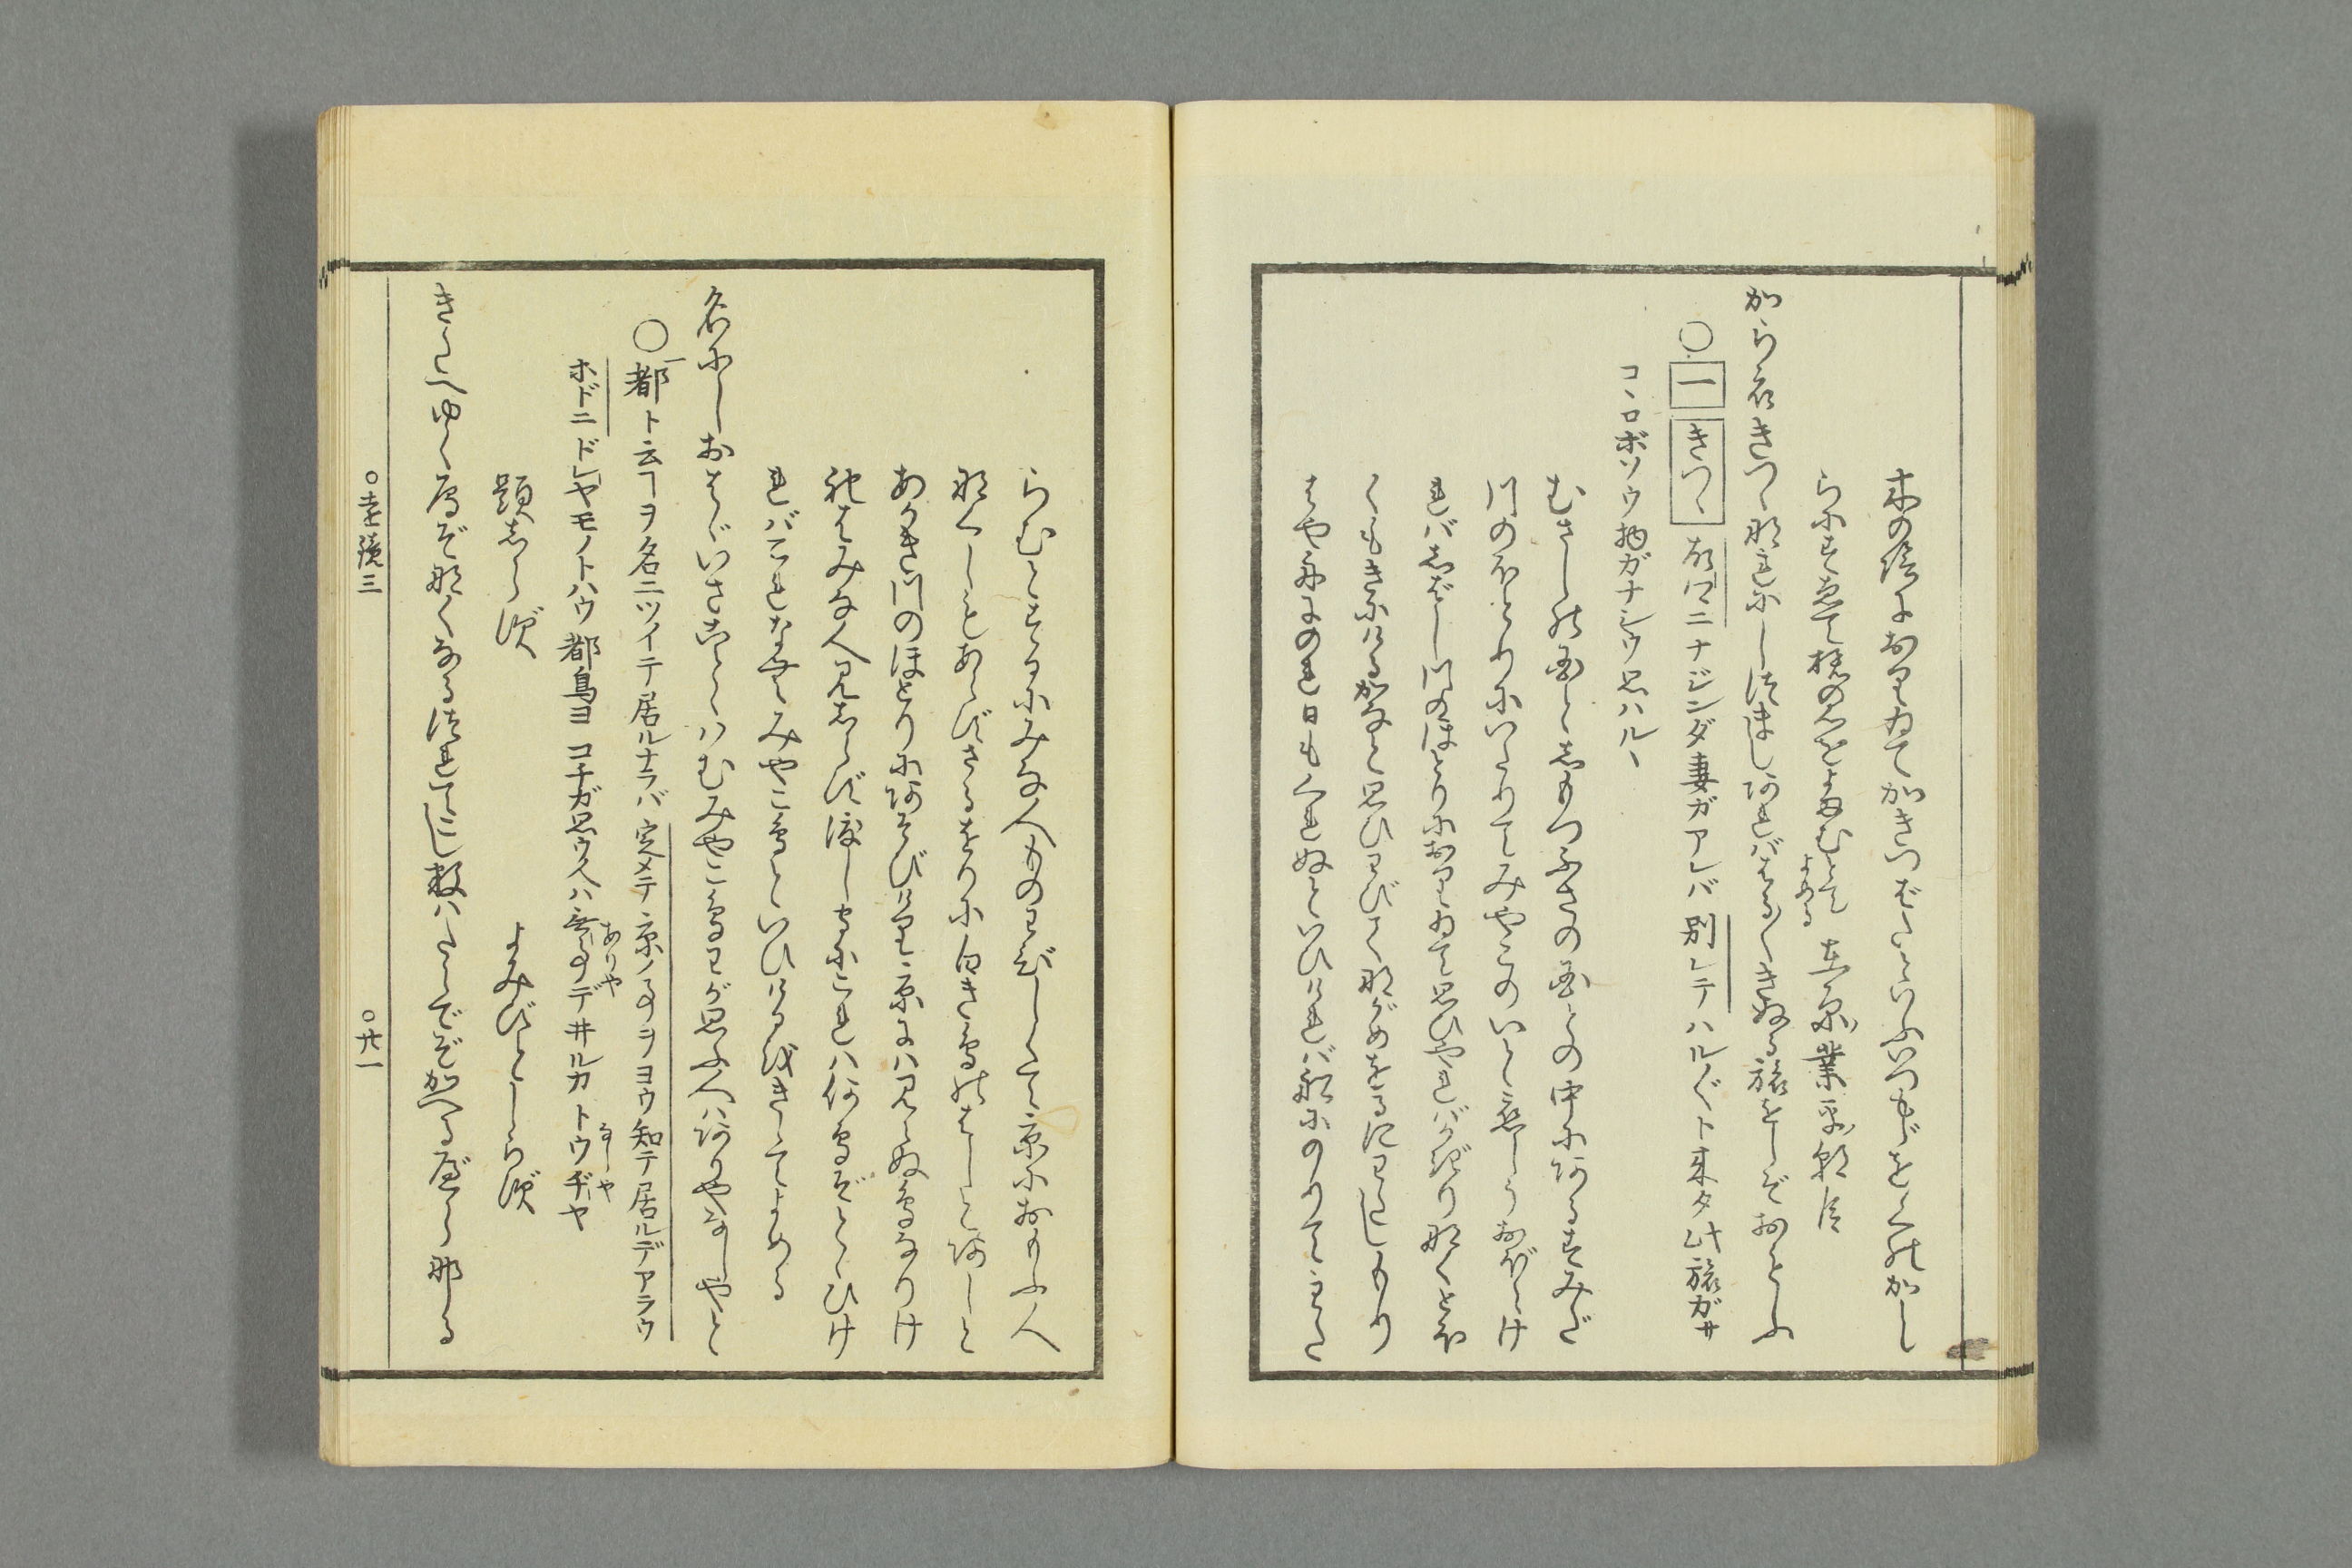 木の陰におりゐてかきつばたといふいつもじをくのかし
らにすゑて旅の心をよまむとてよめる 在原業平朝臣
から衣きつゝなれにしつましあればはる〲きぬる旅をしぞおもふ
〇一きつゝなれニナジンダ妻ガアレバ別レテハル〲ト来タ此旅ガサ
コヽロボソウ物ガナシウ思ハルヽ
むさしの国としもつふさの国との中にあるすみだ
川のほとりにいたりてみやこのいと恋しうおぼえけ
ればしばし川のほとりにおりゐて思ひやればかぎりなくとほ
くもきにけるかなと思ひわびてながめをるにわたしもり
はや舟にのれ日もくれぬといひければ舟にのりてわた
らむとするにみな人ものわびしくて京におもふ人
なくしもあらずさるをりに白き鳥のはしとあしと
あかき川のほとりにあそびけり京には見えぬ鳥なりけ
ればみな人見しらず渡しもりにこれは何鳥ぞとゝひけ
ればこれなむみやこ鳥といひけるをきゝてよめる
名にしおはゞいざことゝはむみやこ鳥わが思ふ人はありやなしやと
〇都ト云ヿヲ名ニツイテ居ルナラバ定メテ京ノ事ヲヨウ知テ居ルデアラウ
ホドニドレヤモノトハウ都鳥ヨコチガ思ウ人ハ無事デ井ルカありやトウヂヤなしや
題しらず よみびとしらず
きたへゆく鴈ぞなくなるつれてこし数はたらでぞかへるべらなる
〇遠鏡三 〇廿一